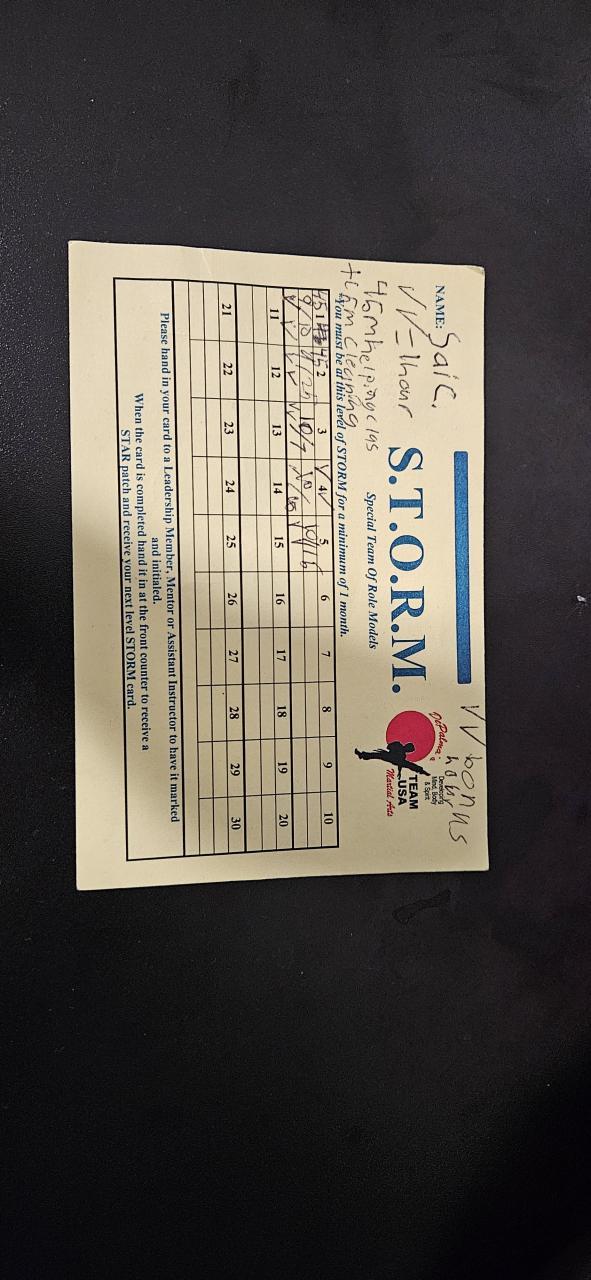 NAME: Sai C.
VV bonus
hour
VV = 1 hour
S.T.O.R.M.
DiPalma's
Developing
Mind, Body
& Spirit
TEAM
USA
Martial Arts
Special Team Of Role Models
45m helping clas
+45m cleaning
*You must be at this level of STORM for a minimum of 1 month.
1 2 3 4 5 6 7 8 9 10
10/7
11 12 13 14 15 16 17 18 19 20
21 22 23 24 25 26 27 28 29 30
Please hand in your card to a Leadership Member, Mentor or Assistant Instructor to have it marked
and initialed.
When the card is completed hand it in at the front counter to receive a
STAR patch and receive your next level STORM card.